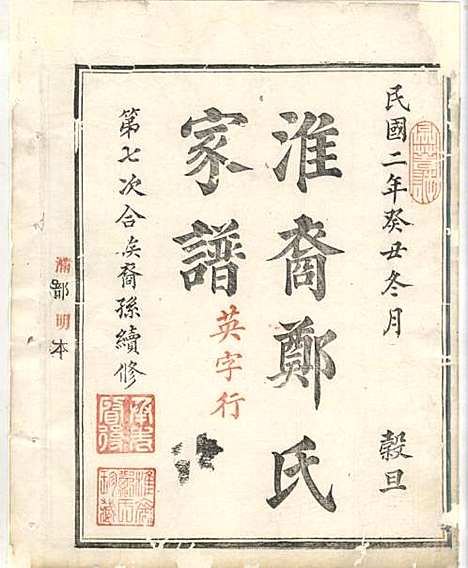 民國二年癸丑冬月 穀旦
淮裔鄭氏
家譜
英字行
第七次合矦裔孫續修
郡明本